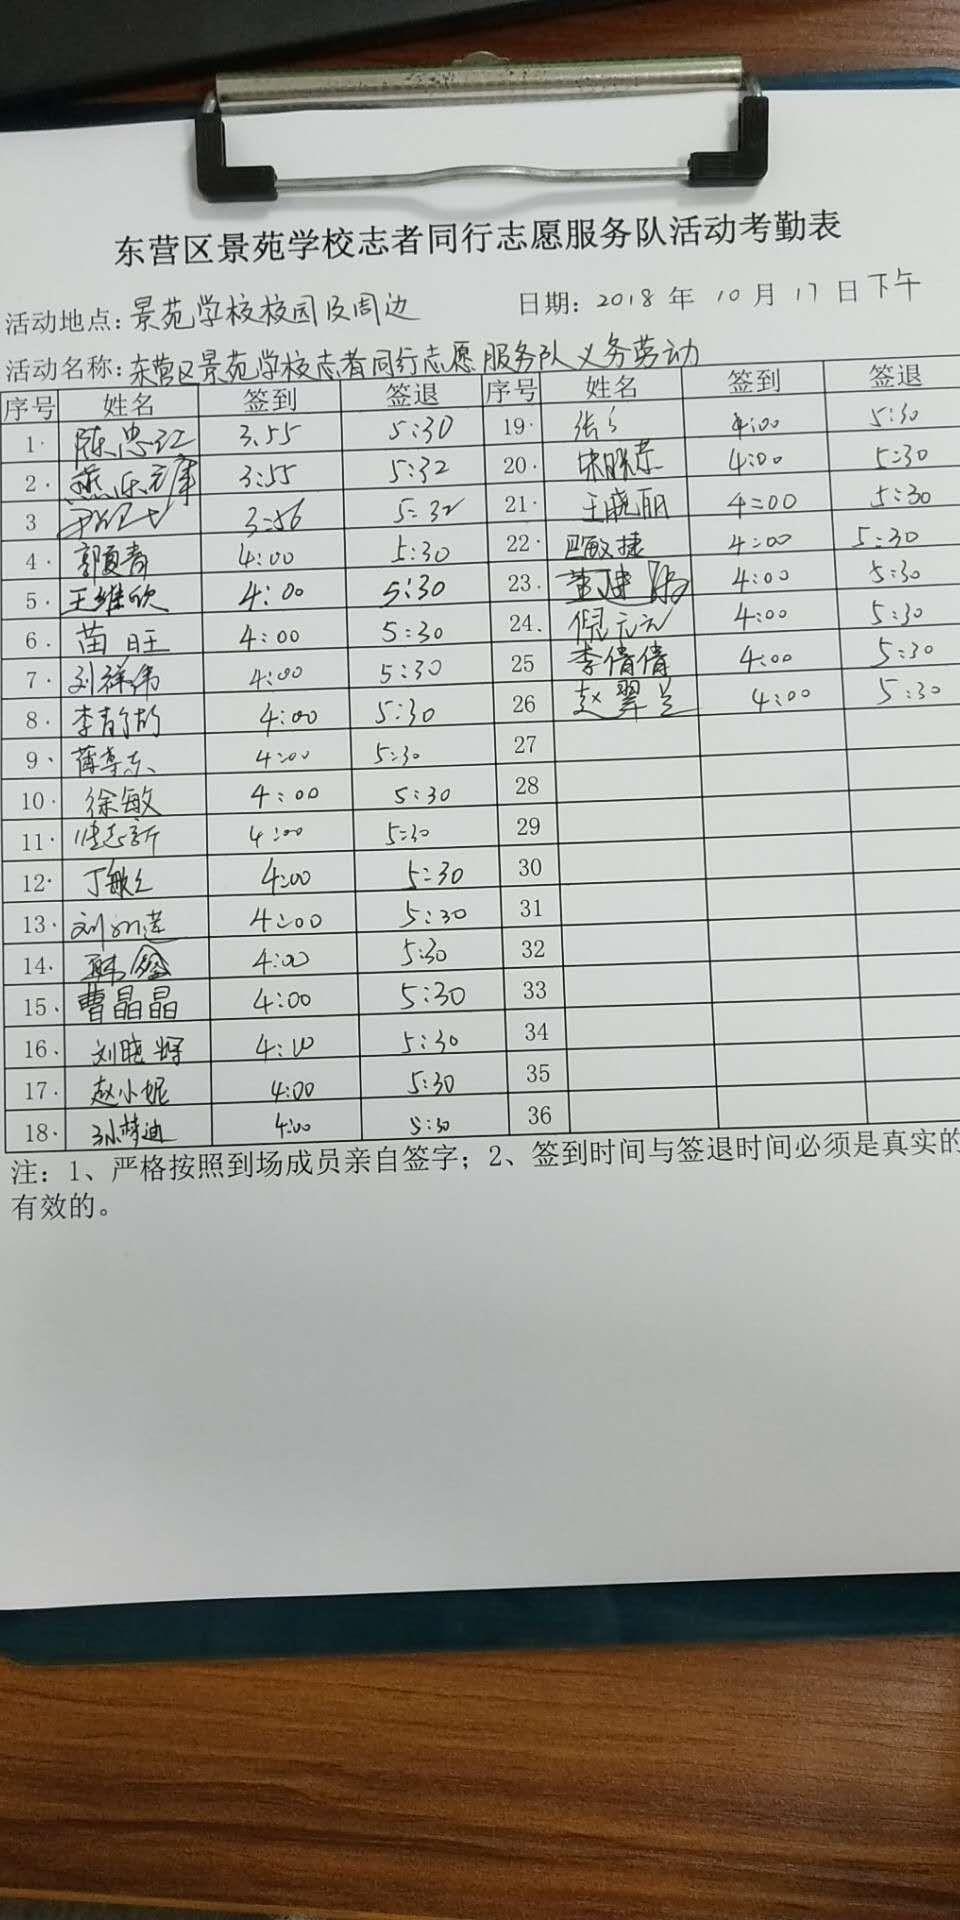 东营区景苑学校志者同行志愿服务队活动考勤表
活动地点：景苑学校校园及周边 日期：2018 年 10 月 17 日下午
活动名称：东营区景苑学校志者同行志愿服务队义务劳动
序号 姓名 签到 签退 序号 姓名 签到 签退
1. 陈忠江 3.55 5:30 19. 4:00 5:30
2. 3:55 5:32 20. 4:00 5:30
3 3:56 5:32 21. 王晓丽 4:00 5:30
4. 郭夏青 4:00 5:30 22. 敏捷 4:00 5:30
5. 王维欣 4:00 5:30 23. 董建 4:00 5:30
6. 苗旺 4:00 5:30 24. 倪元元 4:00 5:30
7. 刘祥伟 4:00 5:30 25 李倩倩 4:00 5:30
8. 4:00 5:30 26 赵翠兰 4:00 5:30
9. 薄寿东 4:00 5:30 27
10. 徐敏 4:00 5:30 28
11. 4:00 5:30 29
12. 4:00 5:30 30
13. 4:00 5:30 31
14. 韩鑫 4:00 5:30 32
15. 曹晶晶 4:00 5:30 33
16. 刘晓辉 4:10 5:30 34
17. 赵小妮 4:00 5:30 35
18. 孙梦迪 4:00 5:30 36
注：1、严格按照到场成员亲自签字；2、签到时间与签退时间必须是真实的
有效的。